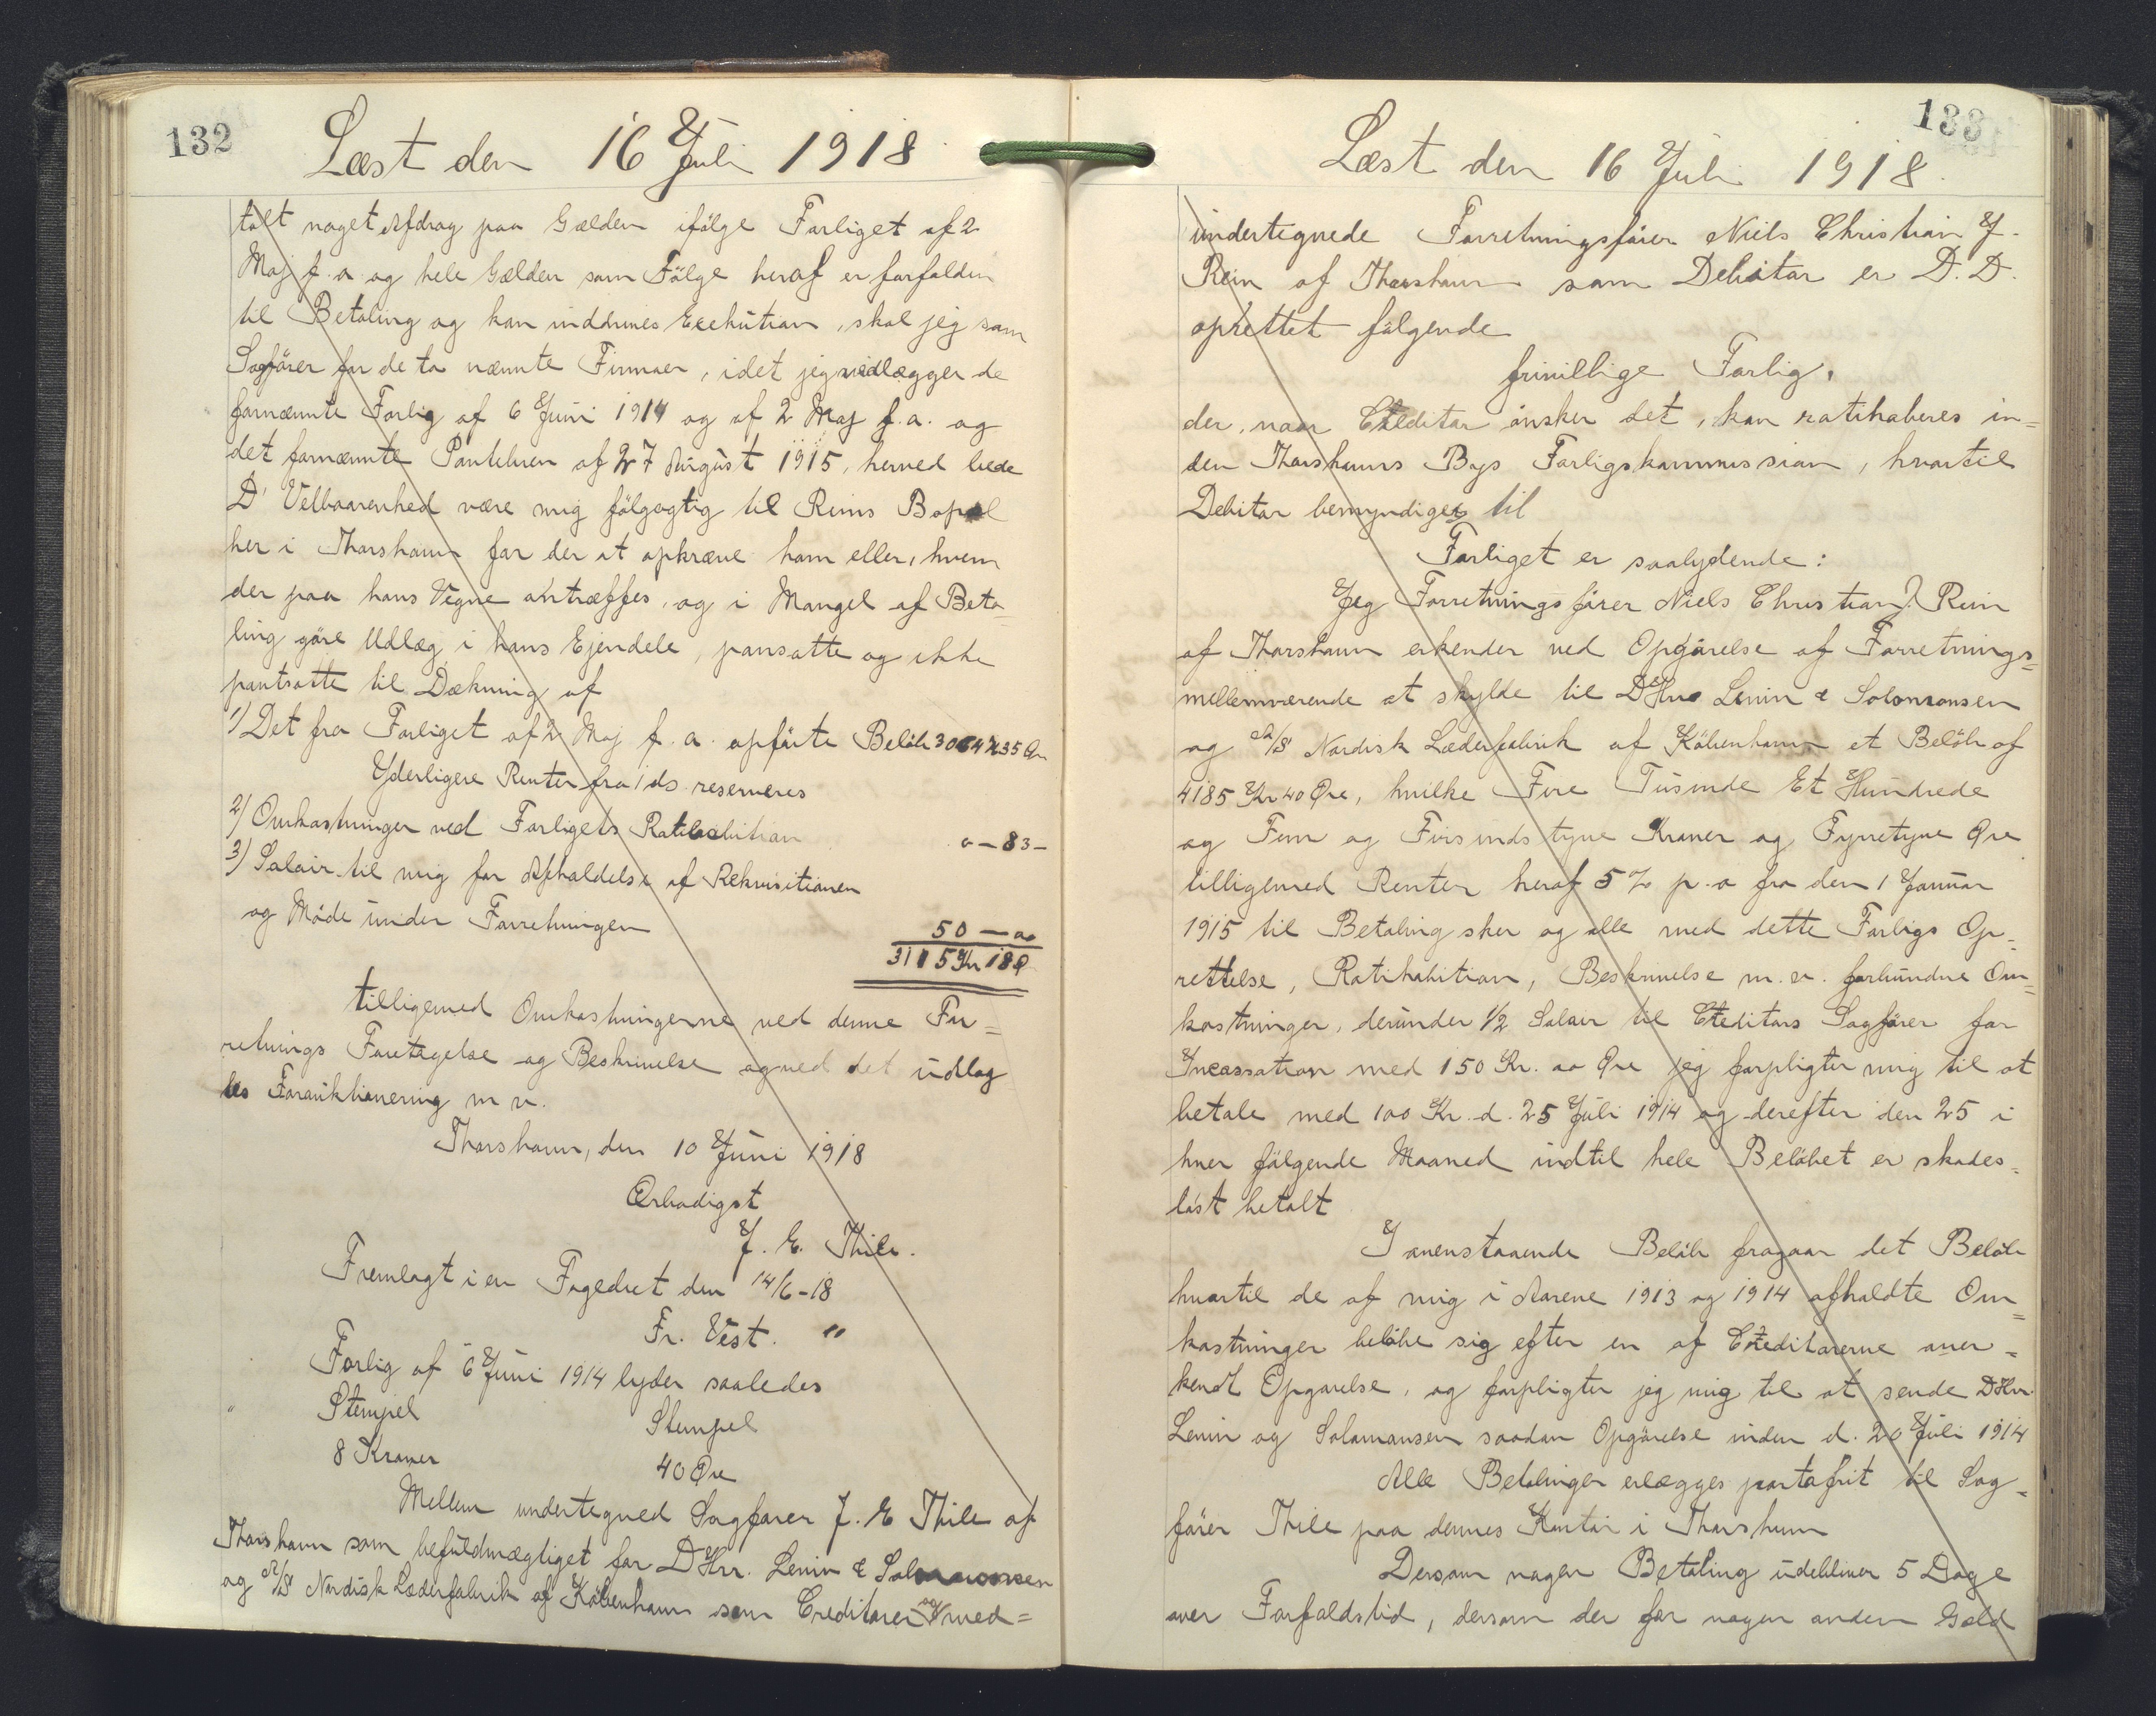 132
Læst den 16 Juli 1918
talt noget Afdrag paa Gælden ifølge Forliget af 2
Maj f. a. og hele Gælden som Følge heraf er forfalden
til Betaling og kan inddrives Exekution, skal jeg som
Sagfører for de to nævnte Firmaer, idet jeg vedlægger de
fornævnte Forlig af 6 Juni 1914 og af 2 Maj f. a. og
det fornævnte Pantebrev af 27 August 1915, herved bede
D' Velbaarenhed være mig følgagtig til Reins Bopæl
her i Thorshavn for der at opkræve ham eller, hvem
der paa hans Vegne antræffes, og i Mangel af Beta=
ling gøre Udlæg i hans Ejendele, pansatte og ikke
pantsatte til Dækning af
1) Det fra Forliget af 2 Maj f. a. opførte Beløb 3064 Kr 35 Ør
Yderligere Renter fra 1 ds. reserveres
2) Omkostninger ved Forligets Ratihabition o — 83 —
3) Salair til mig for Afholdelse af Rekvisitionen
og Møde under Forretningen
50 — oo
3115 Kr 18 Ø
tilligemed Omkostningerne ved denne For=
retnings Foretagelse og Beskrivelse og ved det udlag
tes Forauktionering m v.
Thorshavn, den 10 Juni 1918
Ærbødigst
J. E. Thile.
Fremlagt i en Fogedret den 14/6-18
Fr. Vest. "
Forlig af 6 Juni 1914 lyder saaledes
Stempel Stempel
8 Kroner 40 Øre
Mellem undertegned Sagfører J. E Thile af
Thorshavn som befuldmægtiget for DHrr. Levin & Salomonsen
og A/S Nordisk Læderfabrik af København som Creditorer og V med=
133
Læst den 16 Juli 1918.
undertegnede Forretningsfører Niels Christian J.
Rein af Thorshavn som Debitor er D. D.
oprettet følgende
frivillige Forlig,
der, naar Creditor ønsker det, kan ratihaberes in=
den Thorshavns Bys Forligskommission, hvortil
Debitor bemyndiges til
Forliget er saalydende:
Jeg Forretningsfører Niels Christian J. Rein
af Thorshavn erkender ved Opgørelse af Forretnings=
mellemværende at skylde til DHrr Levin & Solomonsen
og A/S Nordisk Læderfabrik af København et Beløb af
4185 Kr 40 Øre, hvilke Fire Tusinde Et Hundrede
og Fem og Firsindstyve Kroner og Fyrretyve Øre
tilligemed Renter heraf 5 % p. a fra den 1 Januar
1915 til Betaling sker og alle med dette Forligs Op=
rettelse, Ratihabition, Beskrivelse m. v. forbundne Om=
kostninger, derunder 1/2 Salair til Creditors Sagfører for
Incassation med 150 Kr. oo Øre jeg forpligter mig til at
betale med 100 Kr. d. 25 Juli 1914 og derefter den 25 i
hver følgende Maaned indtil hele Beløbet er skades=
løst betalt
I ovenstaaende Beløb fragaar det Beløb
hvortil de af mig i Aarene 1913 og 1914 afholdte Om=
kostninger beløbe sig efter en af Creditorerne aner=
kendt Opgørelse, og forpligter jeg mig til at sende DHrr.
Levin og Solomonsen saadan Opgørelse inden d. 20 Juli 1914
Alle Betalinger erlægges portofrit til Sag=
fører Thile paa dennes Kontor i Thorshavn
Dersom nogen Betaling udebliver 5 Dage
over Forfaldstid, dersom der for nogen anden Gæld